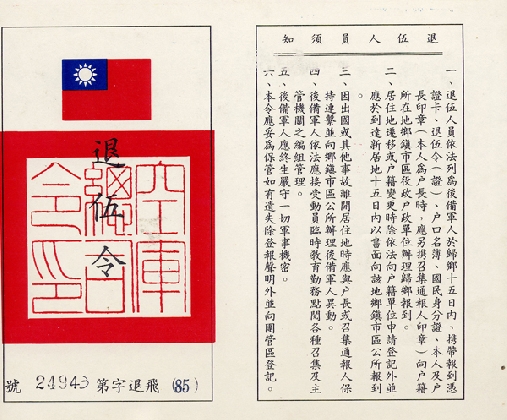 退伍令
(85)飛退字第 24943 號
退伍人員須知
一、退伍人員依法列為後備軍人於歸鄉十五日內、攜帶報到憑
證卡、退伍令(證)、戶口名簿、國民身分證、本人及戶
長印章(本人為戶長時,應另攜召集通報人印章)向戶籍
所在地鄉鎮市區役政戶政單位辦理歸鄉報到。
二、居住地遷移或戶籍變更時除依法向戶籍單位申請登記外並
應於到達新居地十五日內以書面向該地鄉鎮市區公所報到
。
三、因出國或其他事故離開居住地時應與戶長或召集通報人保
持連繫並向鄉鎮市區公所辦理後備軍人異動。
四、後備軍人依法應接受動員臨時教育勤務點閱各種召集及主
管機關之編組管理。
五、後備軍人應終生嚴守一切軍事機密。
六、本令應妥為保管如有遺失除登報聲明外並向團管區登記。